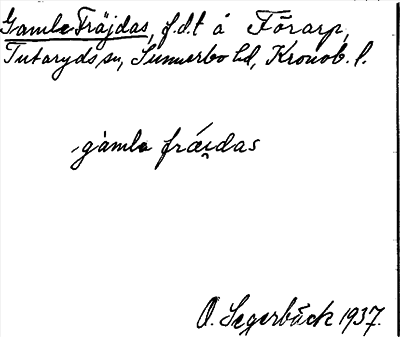 Gamle Fräjdas, f.d.t å Förarp,
Tutaryds sn, Sunnerbo hd, Kronob. l.
gàmlə frä́i̯das
O. Segerbäck 1937.